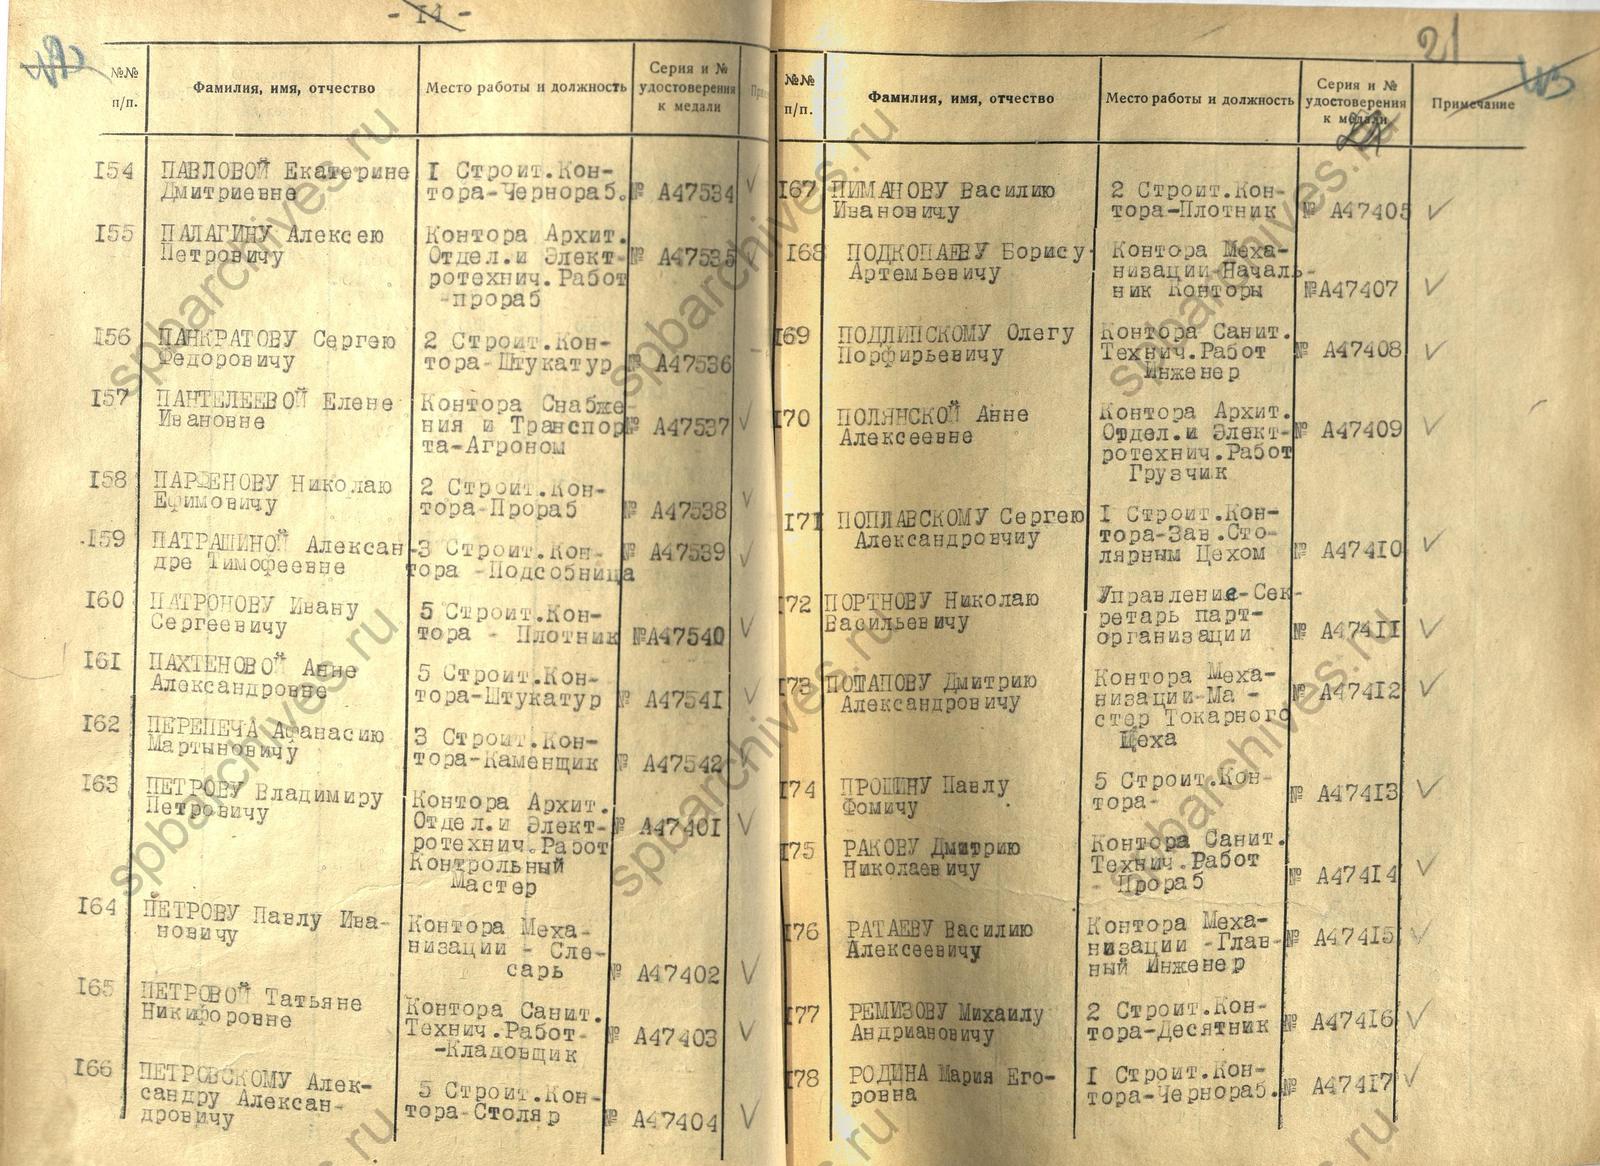 - 14 -
№№
п/п.
Фамилия, имя, отчество
Место работы и должность
Серия и №
удостоверения
к медали
154
ПАВЛОВОЙ Екатерине
Дмитриевне
1 Строит.Кон-
тора-Чернораб.
№ А47534
155
ПАЛАГИНУ Алексею
Петровичу
Контора Архит.
Отдел.и Элект-
ротехнич.Работ
-прораб
№ А47535
156
ПАНКРАТОВУ Сергею
Федоровичу
2 Строит.Кон-
тора-Штукатур
№ А47536
157
ПАНТЕЛЕЕВОЙ Елене
Ивановне
Контора Снабже-
ния и Транспор
та-Агроном
№ А47537
158
ПАРФЕНОВУ Николаю
Ефимовичу
2 Строит.Кон-
тора-Прораб
№ А47538
159
ПАТРАШИНОЙ Алексан-
дре Тимофеевне
3 Строит.Кон-
тора -Подсобница
№ А47539
160
ПАТРОНОВУ Ивану
Сергеевичу
5 Строит.Кон-
тора - Плотник
№А47540
161
ПАХТЕНОВОЙ Анне
Александровне
5 Строит.Кон-
тора-Штукатур
№ А47541
162
ПЕРЕПЕЧА Афанасию
Мартыновичу
3 Строит.Кон-
тора-Каменщик
№ А47542
163
ПЕТРОВУ Владимиру
Петровичу
Контора Архит.
Отдел.и Элект-
ротехнич.Работ
Контрольный
Мастер
№ А47401
164
ПЕТРОВУ Павлу Ива-
новичу
Контора Меха-
низации - Сле-
сарь
№ А47402
165
ПЕТРОВОЙ Татьяне
Никифоровне
Контора Санит.
Технич.Работ-
-Кладовщик
№ А47403
166
ПЕТРОВСКОМУ Алек-
сандру Алексан-
дровичу
5 Строит.Кон-
тора-Столяр
№ А47404
21
№№
п/п.
Фамилия, имя, отчество
Место работы и должность
Серия и №
удостоверения
к медали
Примечание
167
ПИМАНОВУ Василию
Ивановичу
2 Строит.Кон-
тора-Плотник
№ А47405
168
ПОДКОПАЕВУ Борису
Артемьевичу
Контора Меха-
низации-Началь-
ник Конторы
№А47407
169
ПОДЛИПСКОМУ Олегу
Порфирьевичу
Контора Санит.
Технич.Работ
Инженер
№ А47408
170
ПОЛЯНСКОЙ Анне
Алексеевне
Контора Архит.
Отдел.и Элект-
ротехнич.Работ
Грузчик
№ А47409
171
ПОПЛАВСКОМУ Сергею
Александровчиу
1 Строит.Кон-
тора-Зав.Сто-
лярным Цехом
№ А47410
172
ПОРТНОВУ Николаю
Васильевичу
Управление-Сек-
ретарь парт-
организации
№ А47411
173
ПОТАПОВУ Дмитрию
Александровичу
Контора Меха-
низации-Ма -
стер Токарного
Цеха
№ А47412
174
ПРОШИНУ Павлу
Фомичу
5 Строит.Кон-
тора-
№ А47413
175
РАКОВУ Дмитрию
Николаевичу
Контора Санит.
Технич.Работ
- Прораб
№ А47414
176
РАТАЕВУ Василию
Алексеевичу
Контора Меха-
низации -Глав-
ный Инженер
№ А47415
177
РЕМИЗОВУ Михаилу
Андриановичу
2 Строит.Кон-
тора-Десятник
№ А47416
178
РОДИНА Мария Его-
ровна
1 Строит.Кон-
тора-Чернораб.
№ А47417
spbarchives.ru
spbarchives.ru
spbarchives.ru
spbarchives.ru
spbarchives.ru
spbarchives.ru